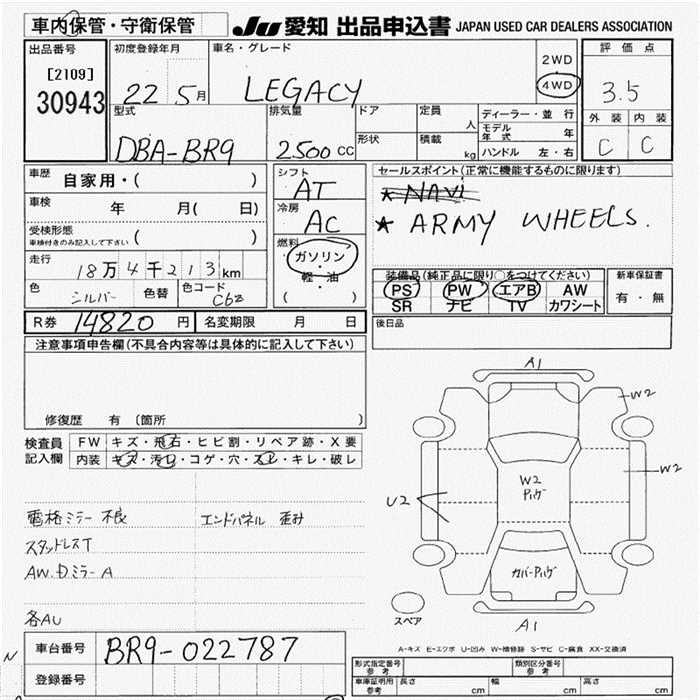 車内保管・守衛保管
JU 愛知 出品申込書 JAPAN USED CAR DEALERS ASSOCIATION
出品番号
[2109]
30943
初度登録年月
22 5月
車名・グレード
LEGACY
2WD
4WD
評価点
3.5
外装 内装
C C
型式
DBA-BR9
排気量
2500 CC
ドア
形状
定員
人
積載
kg
ディーラー・並行
モデル年式 年
ハンドル 左・右
車歴 自家用・( )
車検 年 月(日)
受検形態
車検付きのみ記入して下さい ( )
走行 18万4千213km
色 シルバー 色替
色コード C6Z
シフト AT
冷房 AC
燃料
ガソリン
・
軽・油
・
( )
セールスポイント(正常に機能するものに限ります)
★ NAVi
★ ARMY WHEELS.
装備品(純正品に限り○をつけてください)
PS PW エアB AW
SR ナビ TV カワシート
新車保証書
有・無
後日品
R券 14820 円 名変期限 月 日
注意事項申告欄(不具合内容等は具体的に記入して下さい)
修復歴 有 (箇所 )
検査員記入欄
FW キズ・飛石・ヒビ割・リペア跡・X要
内装 キズ・汚レ・コゲ・穴・スレ・キレ・破レ
電格ミラー 不良 エンドパネル 歪み
スタッドレスT
AW.DミラーA
各AU
A1
W2
W2
W2
U2
A1
スペア
N
車台番号 BR9-022787
登録番号
A-キズ E-エクボ U-凹み W-補修跡 S-サビ C-腐食 XX-交換済
形式指定番号 参考
類別区分番号 参考
車庫証明用 参考 長さ cm 幅 cm 高さ cm